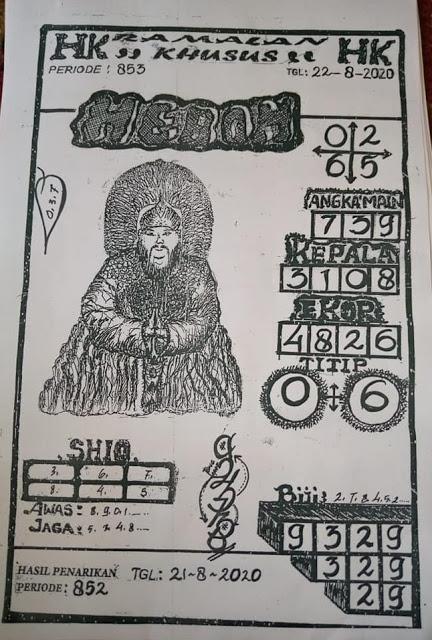 HK RAMALAN HK
KHUSUS
PERIODE : 853
TGL: 22-8-2020
0 2
6 5
O.3.T
ANGKA MAIN
7 3 9
KEPALA
3 1 0 8
EKOR
4 8 2 6
TITIP
0 6
SHIO
3. 6. 7.
8. 4. 5.
AWAS: 8, 9, 0, 1....
JAGA: 5. 7. 4. 8....
Biji: 2. 7. 8. 4. 5. 2....
9 3 2 9
3 2 9
2 9
HASIL PENARIKAN
PERIODE: 852
TGL: 21-8-2020